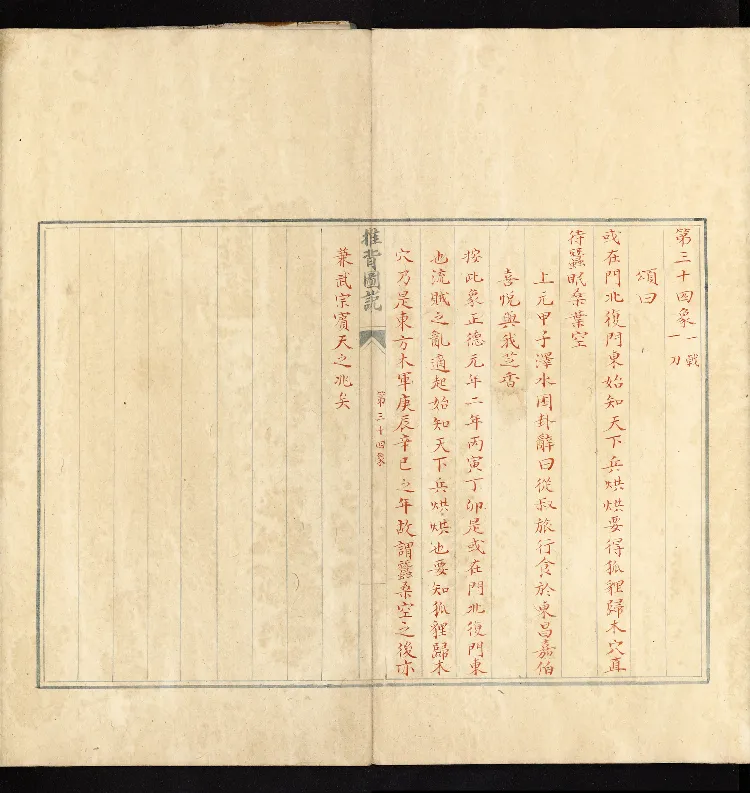 第三十四象一戰一刀
頌曰
或在門北復門東始知天下兵烘烘要得狐貍歸木穴直
待蠶眠桑葉空
上元甲子澤水困卦辭曰從叔旅行食於東昌嘉伯
喜悅與我芝香
按此象正德元年二年丙寅丁卯是或在門北復門東
也流賊之亂適起始知天下兵烘烘也要知狐貍歸木
穴乃是東方木軍庚辰辛巳之年故謂蠶桑空之後亦
兼武宗賓天之兆矣
推背圖說
第三十四象